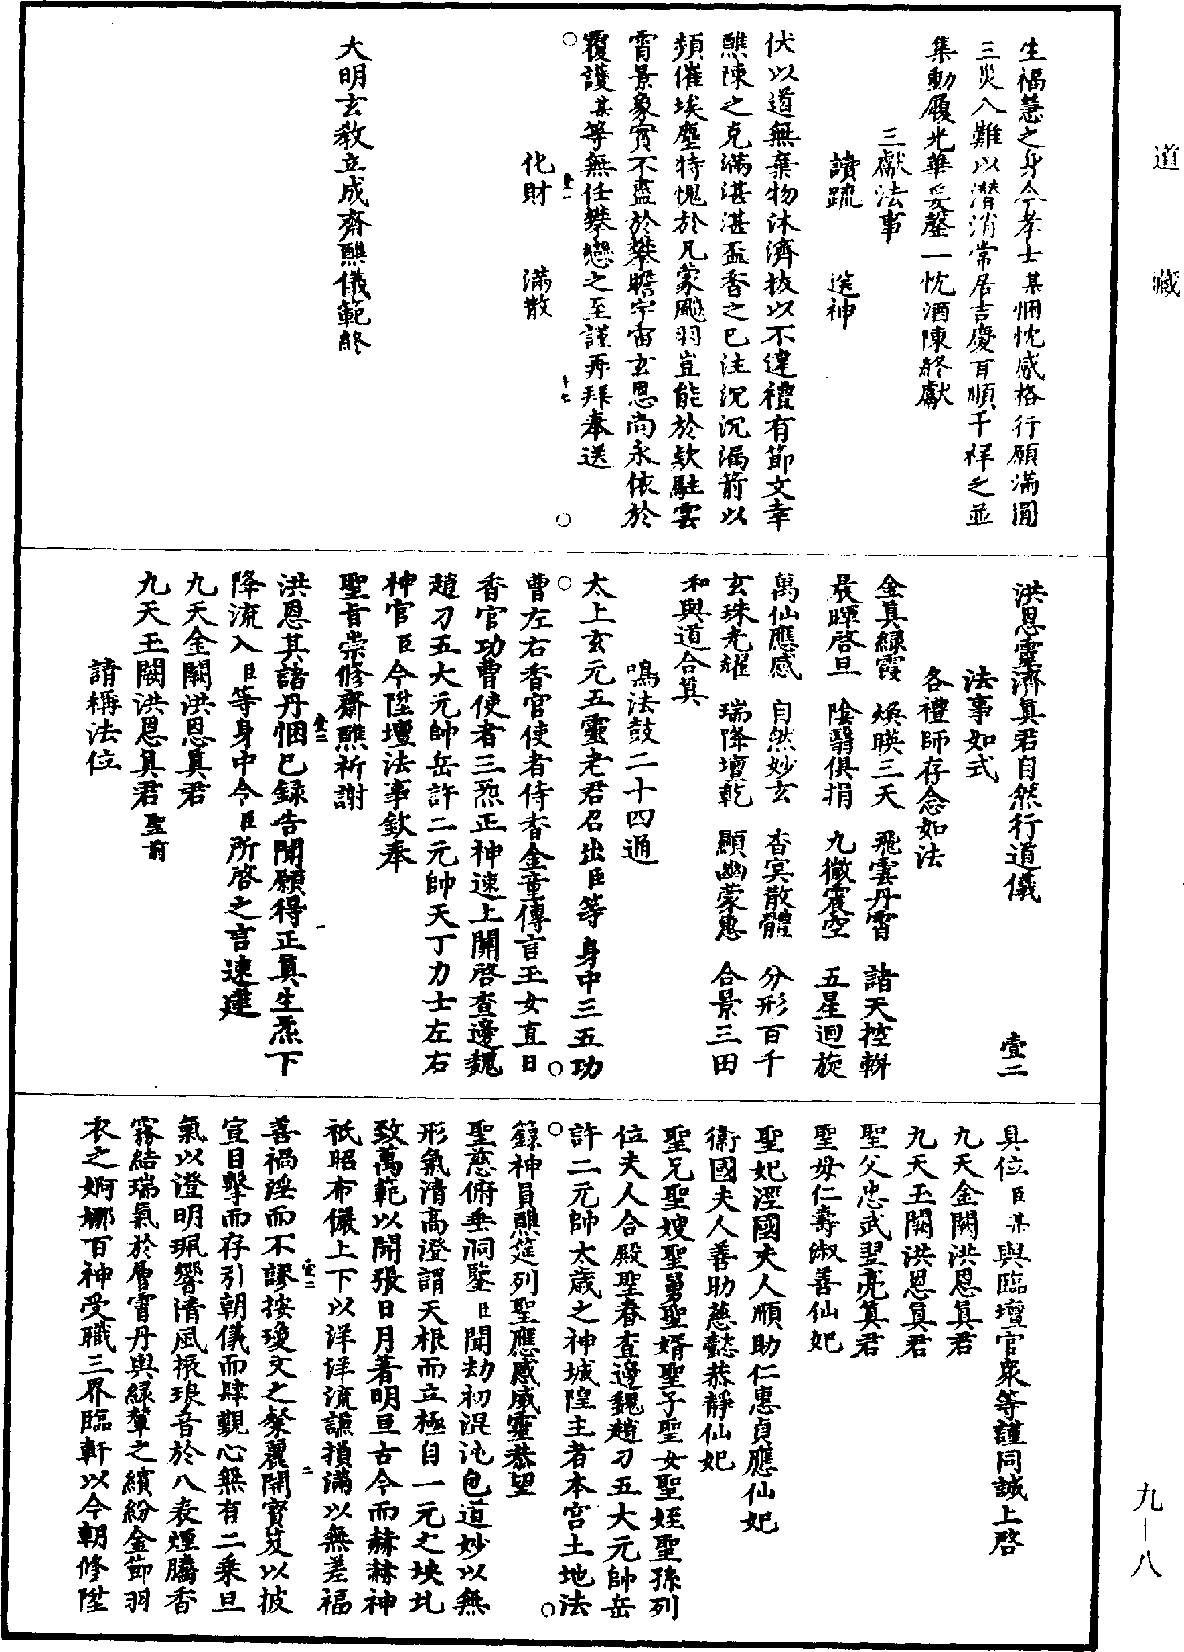 道藏
生福慧之身今孝士某悃忱感格行願滿圓
三災八難以潛消常居吉慶百順千祥之並
集動履光華妥罄一忱酒陳終獻
三獻法事
讀疏 送神
伏以道無棄物沐濟拔以不違禮有節文幸
醮陳之克滿湛湛盃香之已注沉沉漏箭以
頻催埃塵特愧於凡蒙飈羽豈能於欵駐雲
霄景象實不盡於攀瞻宇宙玄恩尚永依於
覆護某等無任攀戀之至謹再拜奉送
化財 滿散
大明玄教立成齋醮儀範終
洪恩靈濟真君自然行道儀 壹二
法事如式
各禮師存念如法
金真緑霞 煥暎三天 飛雲丹霄 諸天控軿
晨暉啓旦 陰翳俱捐 九徹震空 五星迴旋
萬仙應感 自然妙玄 杳冥散體 分形百千
玄珠光耀 瑞降壇乾 顯幽蒙惠 合景三田
和與道合真
鳴法鼓二十四通
太上玄元五靈老君召出臣等身中三五功
曹左右香官使者侍香金童傳言玉女直日
香官功曹使者三炁正神速上關啓查邊魏
趙刁五大元帥岳許二元帥天丁力士左右
神官臣今陞壇法事欽奉
聖旨崇修齋醮祈謝
洪恩其諸丹悃已錄告聞願得正真生炁下
降流入臣等身中令臣所啓之言速達
九天金闕洪恩真君
九天玉闕洪恩真君聖前
請稱法位
具位臣某與臨壇官衆等謹同誠上啓
九天金闕洪恩真君
九天玉闕洪恩真君
聖父忠武翌亮真君
聖母仁壽淑善仙妃
聖妃涇國夫人順助仁惠貞應仙妃
衛國夫人善助慈懿恭靜仙妃
聖兄聖嫂聖舅聖婿聖子聖女聖姪聖孫列
位夫人合殿聖眷查邊魏趙刁五大元帥岳
許二元帥太歲之神城隍主者本宮土地法
籙神員醮筵列聖應感威靈恭望
聖慈俯垂洞鑒臣聞劫初混沌包道妙以無
形氣清高澄謂天根而立極自一元之坱圠
致萬範以開張日月著明亘古今而赫赫神
祇昭布儼上下以洋洋流謙損滿以無差福
善禍淫而不謬按瓊文之粲麗開寶笈以披
宣目擊而存引朝儀而肆觀心無有二乘旦
氣以澄明珮響清風振琅音於八表煙騰香
霧結瑞氣於層霄丹輿緑輦之繽紛金節羽
衣之婀娜百神受職三界臨軒以今朝修陞
九—八